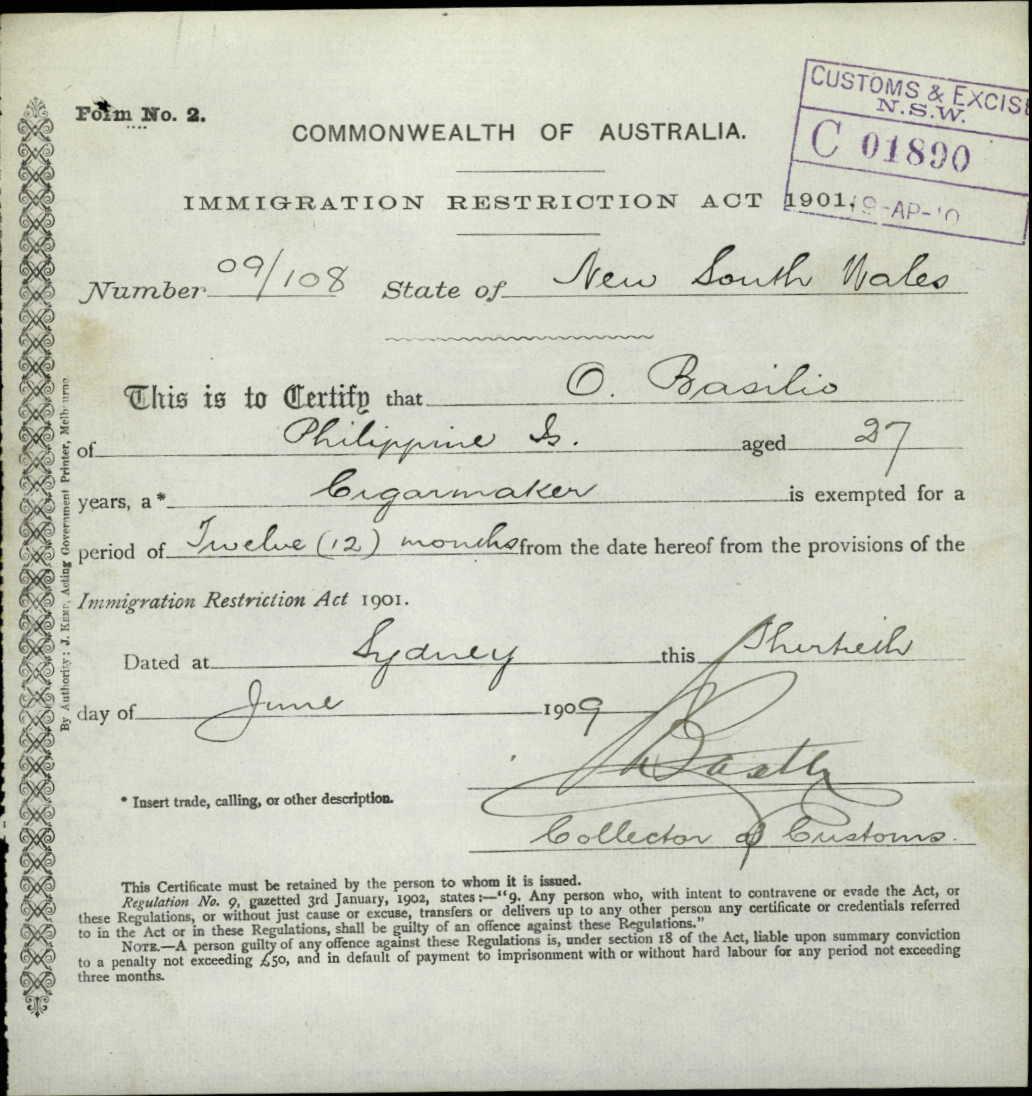 Form No. 2.
CUSTOMS & EXCISE
N.S.W.
C 01890
19-AP-10
COMMONWEALTH OF AUSTRALIA.
IMMIGRATION RESTRICTION ACT 1901.
Number 09/108 State of New South Wales
This is to Certify that O. Basilio
of Philippine Is. aged 27
years, a* Cigarmaker is exempted for a
period of Twelve (12) months from the date hereof from the provisions of the
Immigration Restriction Act 1901.
Dated at Sydney this Thirtieth
day of June 1909
* Insert trade, calling, or other description.
Collector of Customs.
This Certificate must be retained by the person to whom it is issued.
Regulation No. 9, gazetted 3rd January, 1902, states:—"9. Any person who, with intent to contravene or evade the Act, or
these Regulations, or without just cause or excuse, transfers or delivers up to any other person any certificate or credentials referred
to in the Act or in these Regulations, shall be guilty of an offence against these Regulations."
NOTE.—A person guilty of any offence against these Regulations is, under section 18 of the Act, liable upon summary conviction
to a penalty not exceeding £50, and in default of payment to imprisonment with or without hard labour for any period not exceeding
three months.
By Authority: J. KEMP, Acting Government Printer, Melbourne